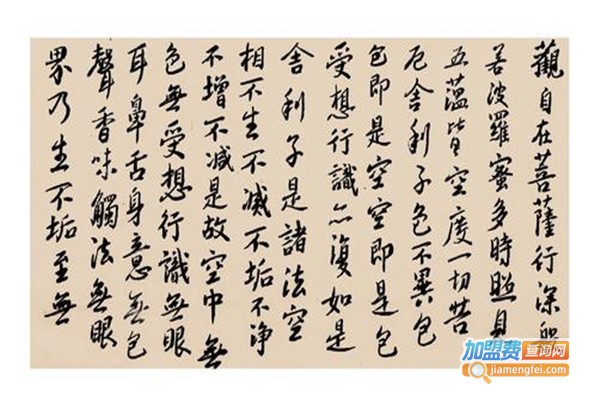 觀自在菩薩行深般
若波羅蜜多時照見
五蘊皆空度一切苦
厄舍利子色不異色
色即是空空即是色
受想行識亦復如是
舍利子是諸法空
相不生不滅不垢不淨
不增不減是故空中無
色無受想行識無眼
耳鼻舌身意無色
聲香味觸法無眼
界乃生不垢至無
加盟费查询网
jiamengfei.com